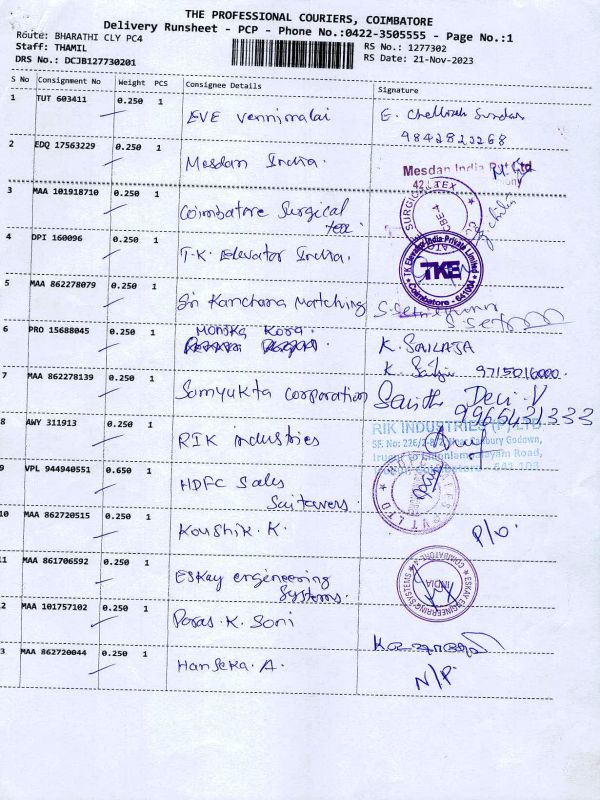 THE PROFESSIONAL COURIERS, COIMBATORE
Delivery Runsheet - PCP - Phone No.:0422-3505555 - Page No.:1
Route: BHARATHI CLY PC4
RS No.: 1277302
Staff: THAMIL
RS Date: 21-Nov-2023
DRS No.: DCJB127730201
S No Consignment No Weight PCS Consignee Details Signature
1 TUT 603411 0.250 1 EVE Vennimalai
9842823268
2 EDQ 17563229 0.250 1 Mesdan India.
Mesdan India Pvt Ltd
3 MAA 101918710 0.250 1 Coimbatore Surgical
tex
SURGICAL TEX
4 DPI 160096 0.250 1 T.K. Elevator India.
TK Elevator India Private Limited
TKE
Coimbatore - 641004
5 MAA 862278079 0.250 1 Sri Kanchana Matching
6 PRO 15688045 0.250 1 Monika Kora.
K. SAILAJA
K. 9715016000
7 MAA 862278139 0.250 1 Samyukta corporation
Devi. V
9965431333
8 AWY 311913 0.250 1 RIK Industries
RIK INDUSTRIES (P) LTD
9 VPL 944940551 0.650 1 HDFC Sales
Saitowers.
PVT LTD
10 MAA 862720515 0.250 1 Koushik. K.
P/O.
11 MAA 861706592 0.250 1 ESKay engineering
Systems.
ESKAY ENGINEERING SYSTEMS
COIMBATORE
INDIA
12 MAA 101757102 0.250 1 Paras. K. Soni
13 MAA 862720044 0.250 1 Hanseka. A.
N/P.